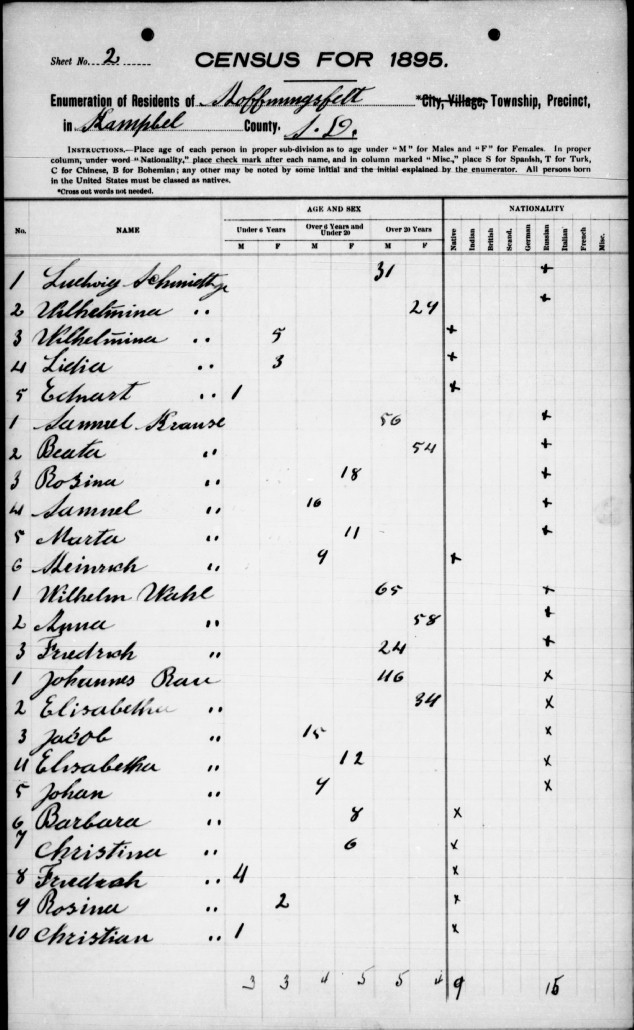 Sheet No. 2
CENSUS FOR 1895.
Enumeration of Residents of Hoffnungsfelt *City, Village, Township, Precinct,
in Kampbel County. S. D.
INSTRUCTIONS.—Place age of each person in proper sub-division as to age under "M" for Males and "F" for Females. In proper
column, under word "Nationality," place check mark after each name, and in column marked "Misc.," place S for Spanish, T for Turk,
C for Chinese, B for Bohemian; any other may be noted by some initial and the initial explained by the enumerator. All persons born
in the United States must be classed as natives.
*Cross out words not needed.
AGE AND SEX NATIONALITY
No. NAME Under 6 Years Over 6 Years and Under 20 Over 20 Years Native Indian British Scand. German Russian Italian French Misc.
M F M F M F
1 Ludwig Schmidt 31 +
2 Wilhelmina " 24 +
3 Wilhelmina " 5 +
4 Lidia " 3 +
5 Eduart " 1 +
1 Samuel Krause 56 +
2 Beata " 54 +
3 Rosina " 18 +
4 Samuel " 16 +
5 Marta " 11 +
6 Heinrich " 9 +
1 Wilhelm Wahl 65 +
2 Anna " 58 +
3 Friedrich " 24 +
1 Johannes Rau 46 x
2 Elisabetha " 34 x
3 Jacob " 15 x
4 Elisabetha " 12 x
5 Johan " 9 x
6 Barbara " 8 x
7 Christina " 6 x
8 Friedrich " 4 x
9 Rosina " 2 x
10 Christian " 1 x
3 3 4 5 5 4 9 15